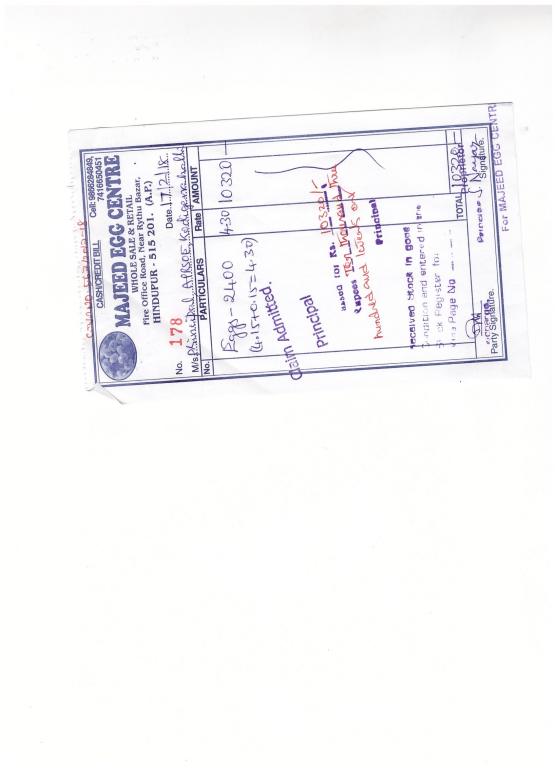 CASH/CREDIT BILL
Cell: 9866284849,
7416650451
MAJEED EGG CENTRE
WHOLE SALE & RETAIL
Fire Office Road, Near Rythu Bazar,
HINDUPUR - 515 201. (A.P.)
No. 178
Date 17/2/18
M/s Principal, APRSOE,
No. PARTICULARS Rate AMOUNT
Eggs - 2400 4.30 10320 -
(4.15+0.15=4.30)
Claim Admitted.
Principal
Rs. 10320/-
Rupees Ten thousand three
hundred and twenty only
Principal
Received stock in good
condition and entered in the
Stock Register for
Page No
TOTAL 10320 -
Party Signature.
Signature.
For MAJEED EGG CENTR